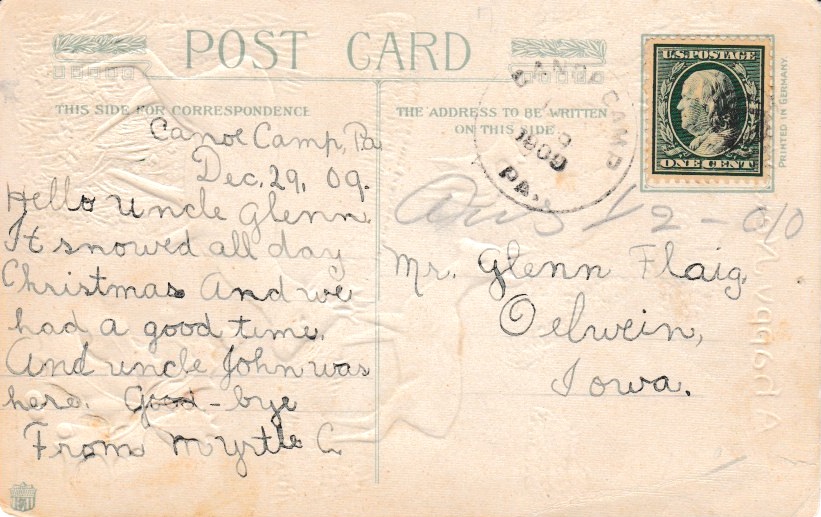 POST CARD
THIS SIDE FOR CORRESPONDENCE
THE ADDRESS TO BE WRITTEN
ON THIS SIDE
CANOE CAMP
1909
PA.
U.S. POSTAGE
ONE CENT
PRINTED IN GERMANY.
Canoe Camp, Pa
Dec. 29, 09.
Hello uncle Glenn
It snowed all day
Christmas And we
had a good time.
And uncle John was
here. Good-bye
From Myrtle C
Ans 1/2-010
Mr. Glenn Flaig,
Oelwein,
Iowa.